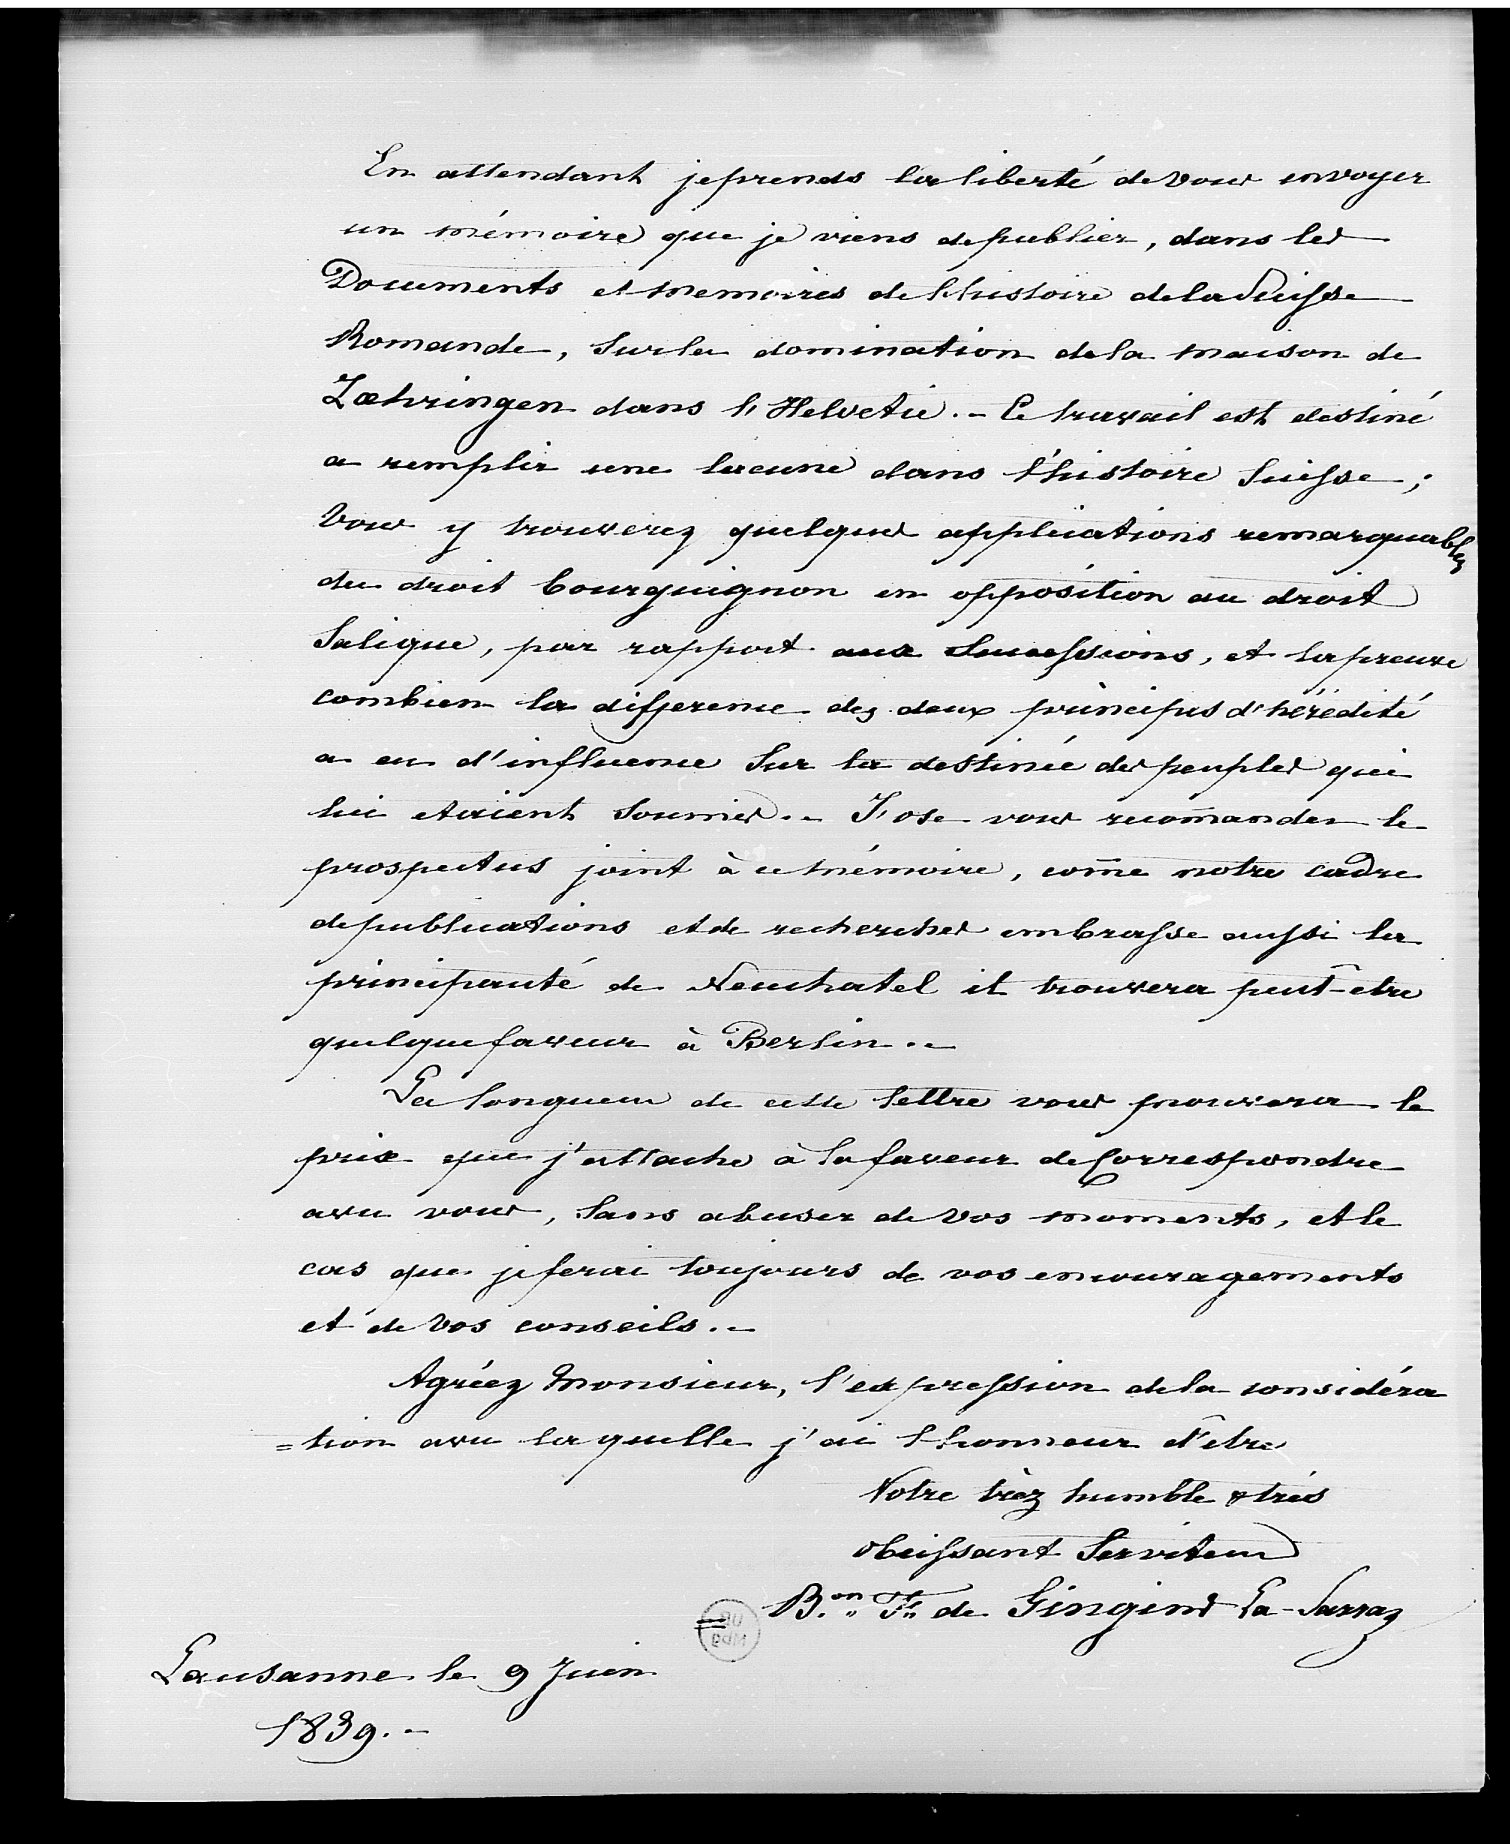 En attendant je prends la liberté de vous envoyer
un mémoire que je viens de publier, dans les
Documents et memoires de l'histoire de la Suisse
Romande, sur la domination de la maison de
Zæhringen dans l'Helvetie. - Ce travail est destiné
a remplir une lacune dans l'histoire Suisse ;
vous y trouverez quelques applications remarquables
du droit bourguignon en opposition au droit
Salique, par rapport aux Successions, et la preuve
combien la difference des deux principes d'hérédité
a eu d'influence sur la destinée des peuples qui
lui etaient soumis. - J'ose vous recom̄ander le
prospectus joint à ce mémoire, com̄e notre cadre
de publications et de recherches embrasse aussi la
principauté de Neuchatel il trouvera peut-etre
quelque faveur à Berlin. -
La longueur de cette lettre vous prouvera le
prix que j'attache à la faveur de Correspondre
avec vous, sans abuser de vos moments, et le
cas que je ferai toujours de vos encouragements
et de vos conseils. -
Agréez Monsieur, l'expression de la considéra
=tion avec la quelle j'ai l'honneur d'etre
Votre trèz humble & très
obeissant Serviteur
B.on Fs de Gingins La-Sarraz
Lausanne le 9 Juin
1839. -